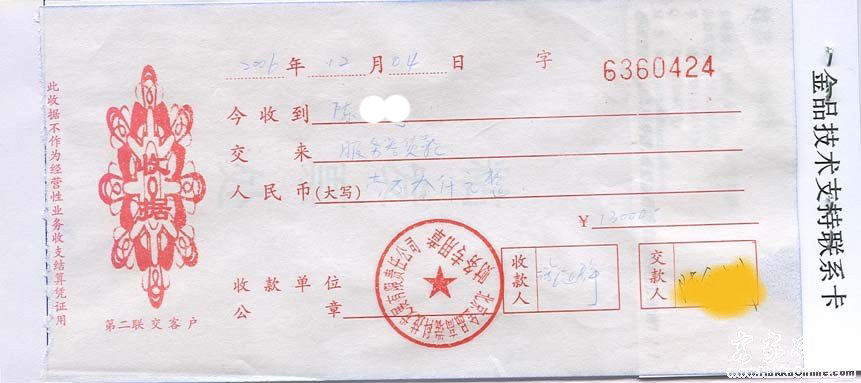 2006 年 12 月 04 日 字 6360424
今收到 陈
交来 服务器货款
人民币(大写) 壹万叁仟元整
¥ 13000
收款单位
公章
收款人
交款人
收据
第二联交客户
此收据不作为经营性业务收支结算凭证用
财务专用章
金品技术支持联系卡